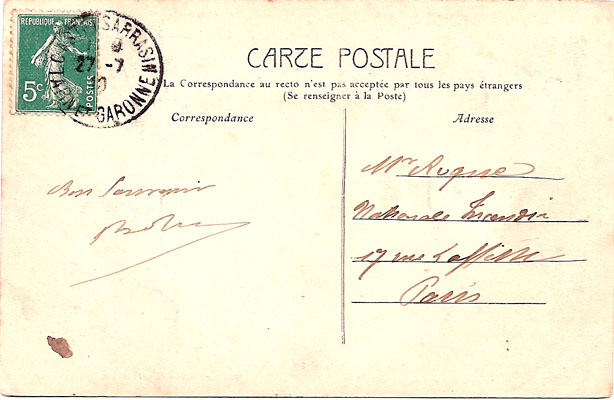 REPUBLIQUE FRANÇAISE
5c
POSTES
SARRASIN
27 -7
GARONNE
CARTE POSTALE
La Correspondance au recto n'est pas acceptée par tous les pays étrangers
(Se renseigner à la Poste)
Correspondance
Adresse
Bon Souvenir
Mr
Nationale Incendie
17 rue Laffitte
Paris